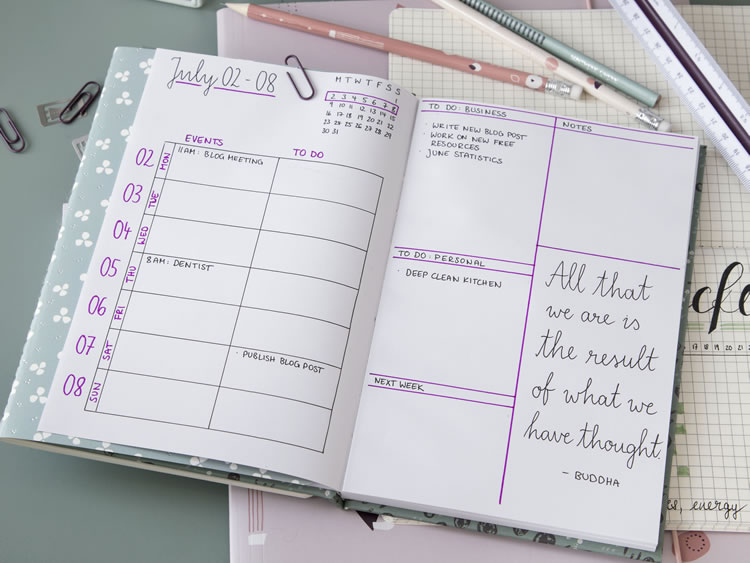 July 02 - 08
M T W T F S S
1
2 3 4 5 6 7 8
9 10 11 12 13 14 15
16 17 18 19 20 21 22
23 24 25 26 27 28 29
30 31
EVENTS
TO DO
02 MON
11 AM: BLOG MEETING
03 TUE
04 WED
05 THU
8 AM: DENTIST
06 FRI
07 SAT
· PUBLISH BLOG POST
08 SUN
TO DO: BUSINESS
· WRITE NEW BLOG POST
· WORK ON NEW FREE
RESOURCES
· JUNE STATISTICS
TO DO: PERSONAL
· DEEP CLEAN KITCHEN
NEXT WEEK
NOTES
All that
we are is
the result
of what we
have thought.
- BUDDHA
17 18 19 20 21
energy